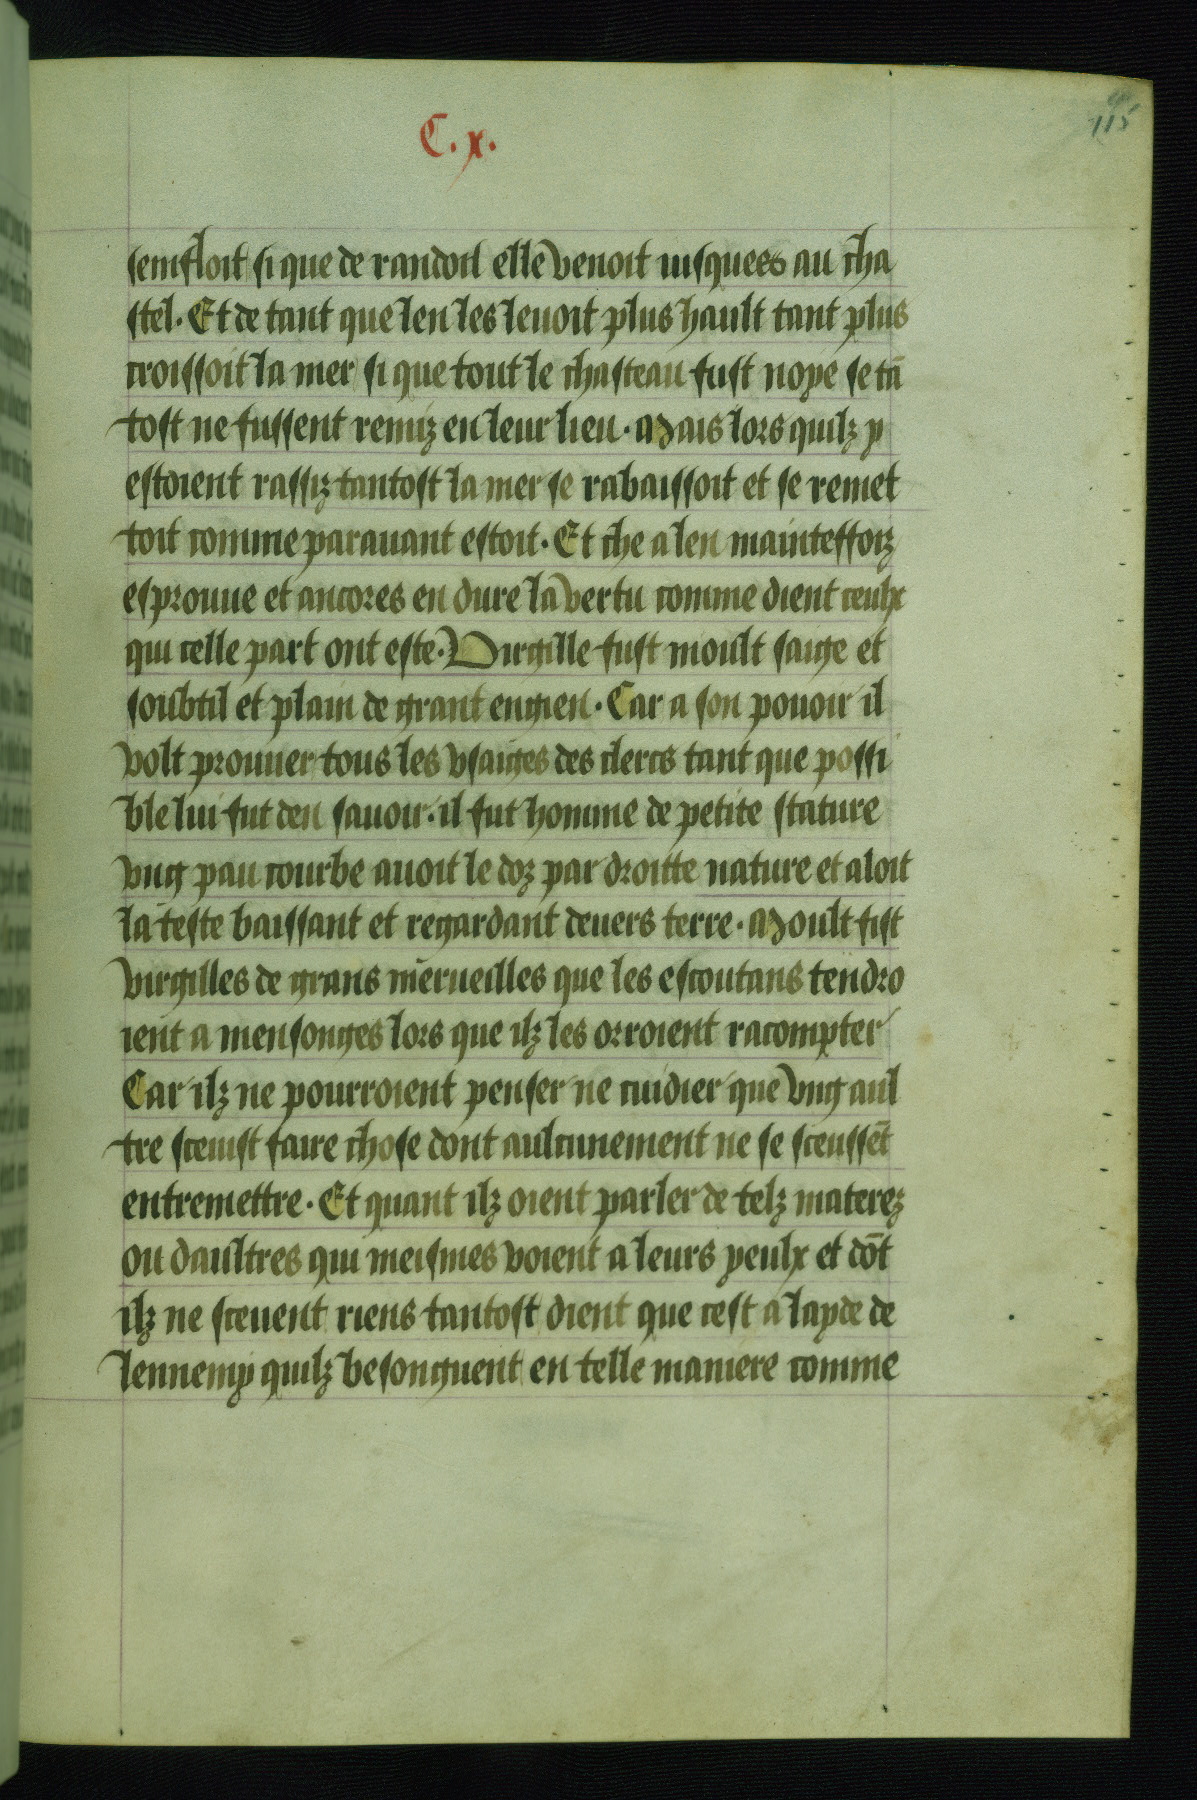 C. x.
115
semfloit si que de randon elle venoit iusquees au cha
stel. Et de tant que len les leuoit plus hault tant plus
croissoit la mer si que tout le chasteau fust noye se tā
tost ne fussent remiz en leur lieu. Mais lors quilz y
estoient rassiz tantost la mer se rabaissoit et se remet
toit comme parauant estoit. Et che a len mainteffoiz
esprouue et ancores en dure la vertu comme dient ceulx
qui celle part ont este. Virgille fust moult saige et
soubtil et plain de grant engien. Car a son pouoir il
volt prouuer tous les vsaiges des clercs tant que possi
ble lui fut den sauoir. il fut homme de petite stature
vng pau courbe auoit le doz par droitte nature et aloit
la teste baissant et regardant deuers terre. Moult fist
virgilles de grans merueilles que les escoutans tendro
ient a mensonges lors que ilz les orroient racompter
Car ilz ne pourroient penser ne cuidier que vng aul
tre sceuist faire chose dont aulcunement ne se sceussēt
entremettre. Et quant ilz oient parler de telz materez
ou daultres qui meismes voient a leurs yeulx et dōt
ilz ne sceuent riens tantost dient que cest a layde de
lennemy quilz besonguent en telle maniere comme